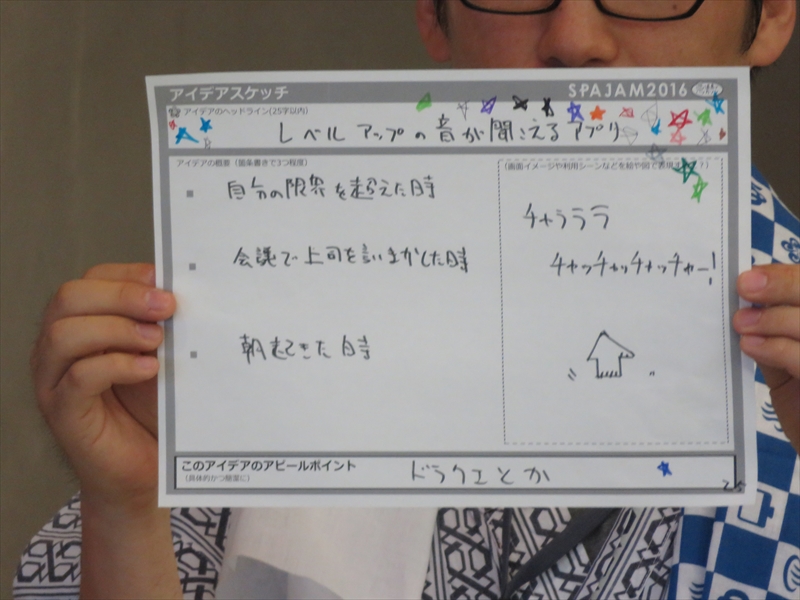 アイデアスケッチ
SPAJAM2016
アイデアのヘッドライン(25字以内)
レベルアップの音が聞こえるアプリ
アイデアの概要(箇条書きで3つ程度)
自分の限界を超えた時
会議で上司を言いまかした時
朝起きた時
(画面イメージや利用シーンなどを絵や図で表現
チャラララ
チャッチャッチャッチャー!
このアイデアのアピールポイント
(具体的かつ簡潔に)
ドラクエとか
25